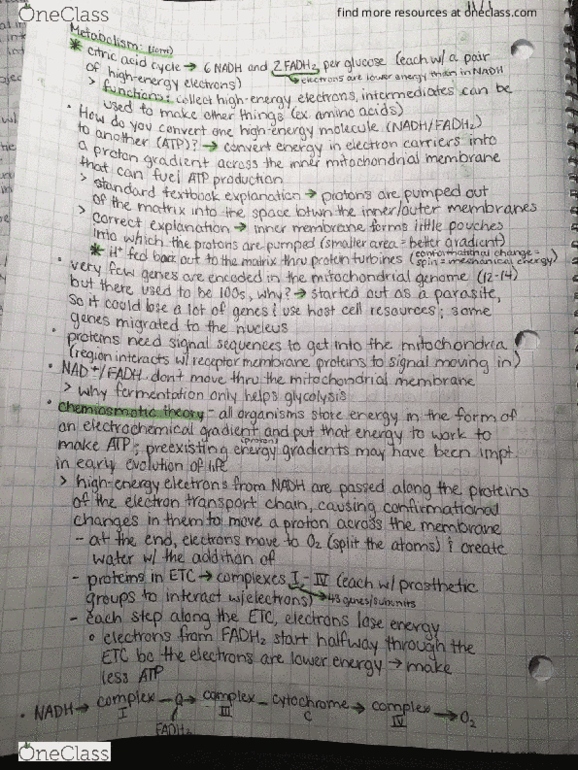 OneClass
find more resources at oneclass.com
Metabolism: (cont)
* citric acid cycle → 6 NADH and 2 FADH2 per glucose (each w/ a pair
of high-energy electrons)
→ electrons are lower energy than in NADH
> function: collect high-energy electrons, intermediates can be
used to make other things (ex. amino acids)
• How do you convert one high-energy molecule (NADH/FADH2)
to another (ATP)? → convert energy in electron carriers into
a proton gradient across the inner mitochondrial membrane
that can fuel ATP production
> standard textbook explanation → protons are pumped out
of the matrix into the space btwn the inner/outer membranes
> correct explanation → inner membrane forms little pouches
into which the protons are pumped (smaller area = better gradient)
* H+ fed back out to the matrix thru protein turbines (conformational change =
spin = mechanical energy)
• very few genes are encoded in the mitochondrial genome (12-14)
but there used to be 100s, why? → started out as a parasite,
so it could lose a lot of genes & use host cell resources; some
genes migrated to the nucleus
• proteins need signal sequences to get into the mitochondria
(region interacts w/ receptor membrane proteins to signal moving in)
• NAD+/FADH don't move thru the mitochondrial membrane
> why fermentation only helps glycolysis
• chemiosmotic theory - all organisms store energy in the form of
an electrochemical gradient and put that energy to work to
make ATP; preexisting energy gradients may have been impt.
(proton)
in early evolution of life
> high-energy electrons from NADH are passed along the proteins
of the electron transport chain, causing confirmational
changes in them to move a proton across the membrane
- at the end, electrons move to O2 (split the atoms) & create
water w/ the addition of
- proteins in ETC → complexes I - IV (each w/ prosthetic
groups to interact w/ electrons) → 43 genes/subunits
- each step along the ETC, electrons lose energy
° electrons from FADH2 start halfway through the
ETC bc the electrons are lower energy → make
less ATP
• NADH → complex I - Q → complex III - cytochrome c → complex IV → O2
FADH2
OneClass